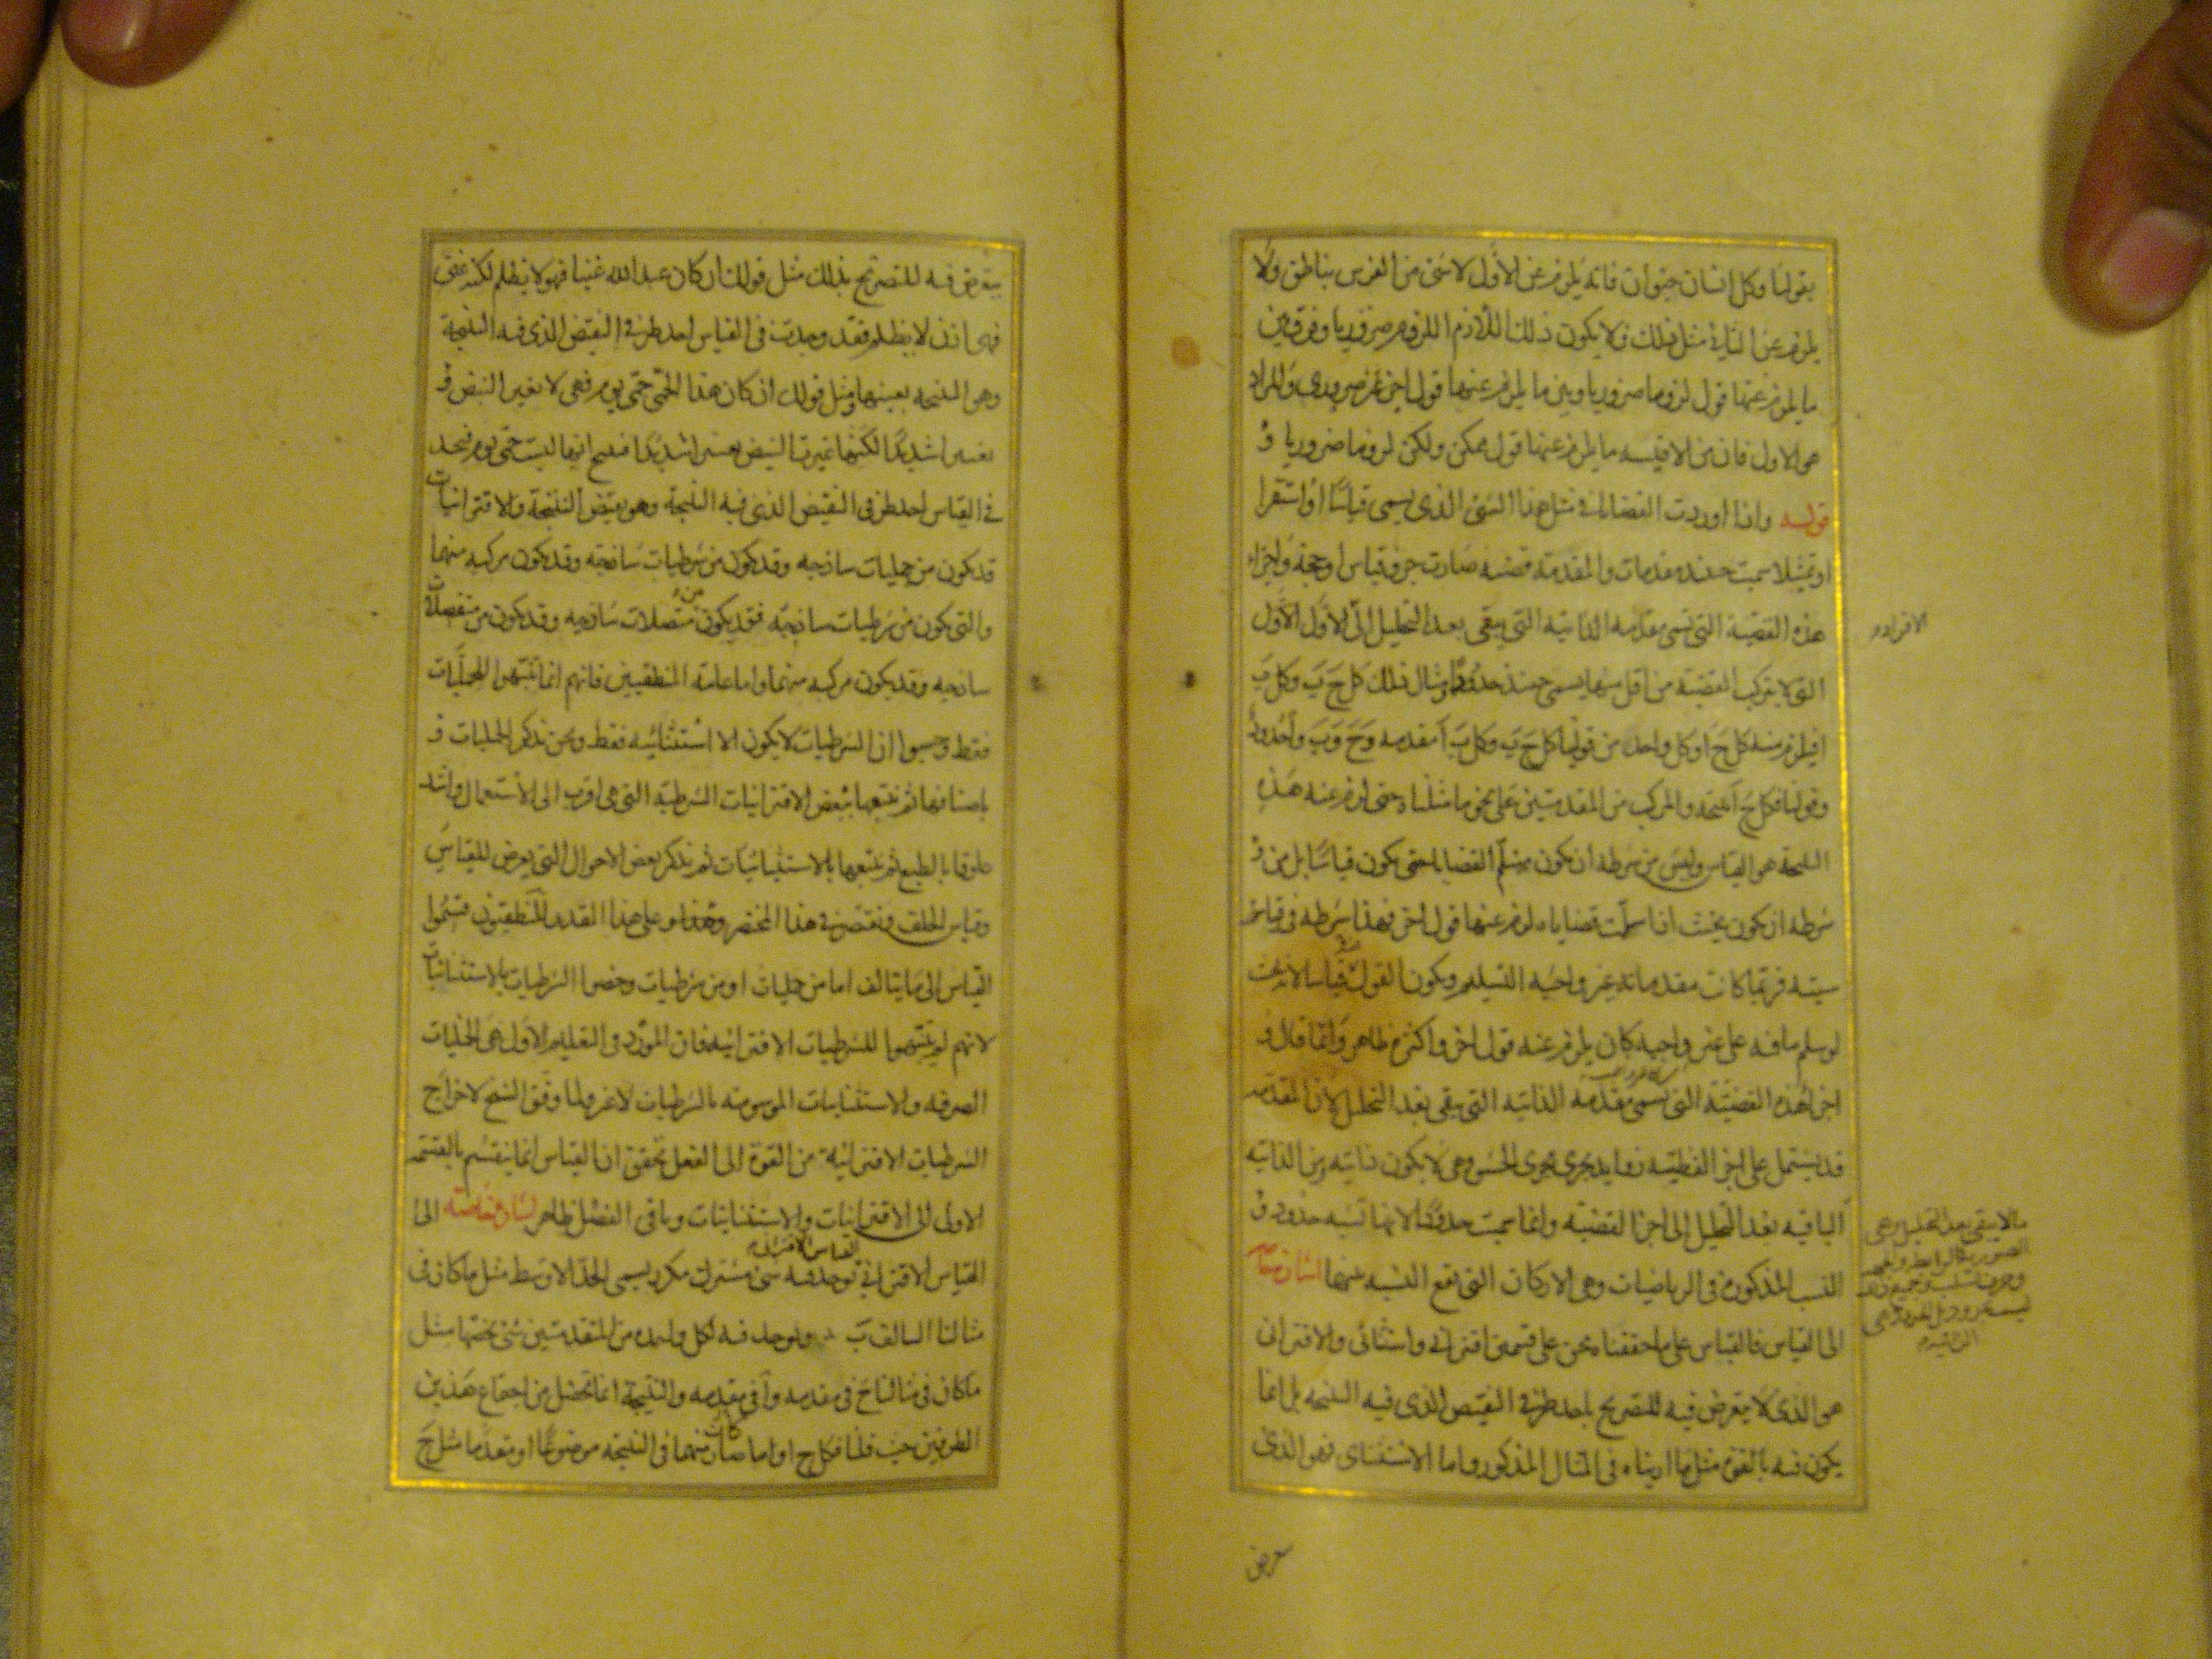 بقولنا وكل انسان حيوان فانه يلزم عن الاول لا شئ من الفرس بناطق ولا
يلزم عن الثاني مثل ذلك ولا يكون ذلك اللازم اللزوم ضروريا وفرق بين
ما يلزم عنها قول لزوما ضروريا وبين ما يلزم عنها قول اخر غير ضروري والمراد
هو الاول فان من الاقيسه ما يلزم عنها قول ممكن ولكن لزوما ضروريا
قوله واذا اوردت القضايا في مثل هذا الشئ الذي يسمى قياسا او استقرا
او تمثيلا سميت حينئذ مقدمات والمقدمة قضيه صارت جزو قياس او حجة واجزاء
هذه القضية التي تسمى مقدمه الذاتيه التي يبقى بعد التحليل الى الافراد الاول
التي لا يتركب القضية من اقل منها يسمى حينئذ حدودا ومثال ذلك كل ج ب وكل ب
ا فيلزم منه كل ج ا وكل واحد من قولنا كل ج ب وكل ب ا مقدمه و ج و ب و ا حدود
وقولنا فكل ج ا نتيجة والمركب من المقدمتين على نحو ما مثلناه حتى لزم عنه هذه
النتيجة هو القياس وليس من شرطه ان يكون مسلم القضايا حتى يكون قياسا بل من
شرطه ان يكون بحيث اذا سلمت قضاياه لزم عنها قول اخر فهذا شرطه في قياس
يته فربما كانت مقدماته غير واجبه التسليم ويكون القول فيه قياسا لانه بحيث
لو سلم ما فيه على غير واجبه كان يلزم عنه قول اخر واكثره ظاهر وانما قال
اجزا هذه القضية التي تسمى مقدمه الذاتيه التي يبقى بعد التحليل لان المقدمه
قد يشتمل على اجزا لفظيه زوايد يجرى مجرى الحشو وهي لا يكون ذاتيه ومن الذاتيه
الباقيه بعد التحليل الى اجزا القضيه وانما سميت حدودا لانها تشبه حدود
النسب المذكوره في الرياضيات وهي الاركان التي تقع النسبه بينها اشارة خاصه
الى القياس فالقياس على ما حققناه نحن على قسمين اقتراني واستثنائي والاقتراني
هو الذي لا يتعرض فيه للتصريح باحد طرفي النقيض الذي فيه النتيجه بل انما
يكون فيه بالقوه مثل ما اريناه في المثال المذكور واما الاستثناى فهو الذي
يتعرض
الافراد
ما لا يبقى بعد التحليل وهي
يتعرض فيه للتصريح بذلك مثل قولك ان كان عبد الله غنيا فهو لا يظلم لكنه غنى
فهو اذن لا يظلم فقد وجدت في القياس احد طرفي النقيض الذي فيه النتيجة
وهو النتيجه بعينها ومثل قولك ان كان هذه الحمى حمى يوم فهى لا تغير النبض
تغييرا شديدا لكنها غيرت النبض تغييرا شديدا فينتج انها ليست حمى يوم فتجد
في القياس احد طرفي النقيض الذي فيه النتيجة وهو نقيض النتيجة والاقترانيات
قد يكون من حمليات ساذجه وقد يكون من شرطيات ساذجه وقد يكون مركبه منهما
والتي يكون من شرطيات ساذجه فقد يكون من متصلات ساذجه وقد يكون من منفصلات
ساذجه وقد يكون مركبه منهما واما عامة المنطقيين فانهم انما تنبهوا للحمليات
فقط وحسبوا ان الشرطيات لا يكون الا استثنائيه فقط ونحن نذكر الحمليات
باصنافها ثم نتبعها ببعض الاقترانيات الشرطيه التي هي اقرب الى الاستعمال واشد
علوقا بالطبع ثم نتبعها بالاستثنائيات ثم نذكر بعض الاحوال التي يعرض للقياس
وقياس الخلف ونقتصر في هذا المختصر على هذا القدر المنطقيون قسموا
القياس الى ما يتالف اما من حمليات او من شرطيات وخصوا الشرطيات بالاستثنائيات
لانهم لم يتنبهوا للشرطيات الاقترانيه فان المورد في التعليم الاول هي الحمليات
الصرفه والاستثنائيات الموسومة بالشرطيات لا غير ولما وفق الشيخ لاخراج
الشرطيات الاقترانية من القوة الى الفعل تحقق ان القياس انما ينقسم بالقسمة
الاولى الى الاقترانيات والاستثنائيات وباقى الفصل ظاهر اشارة خاصه الى
القياس الاقتراني القياس الاقتراني يوجد فيه شئ مشترك مكرر يسمى الحد الاوسط مثل ما كان في
مثالنا السالف ب ويوجد فيه لكل واحده من المقدمتين شئ يخصها مثل
ما كان في مثالنا ج في مقدمه و ا في مقدمه والنتيجة انما تحصل من اجتماع هذين
الطرفين حيث قلنا فكل ج ا وما صار منهما في النتيجه موضوعا او مقدما مثل ج